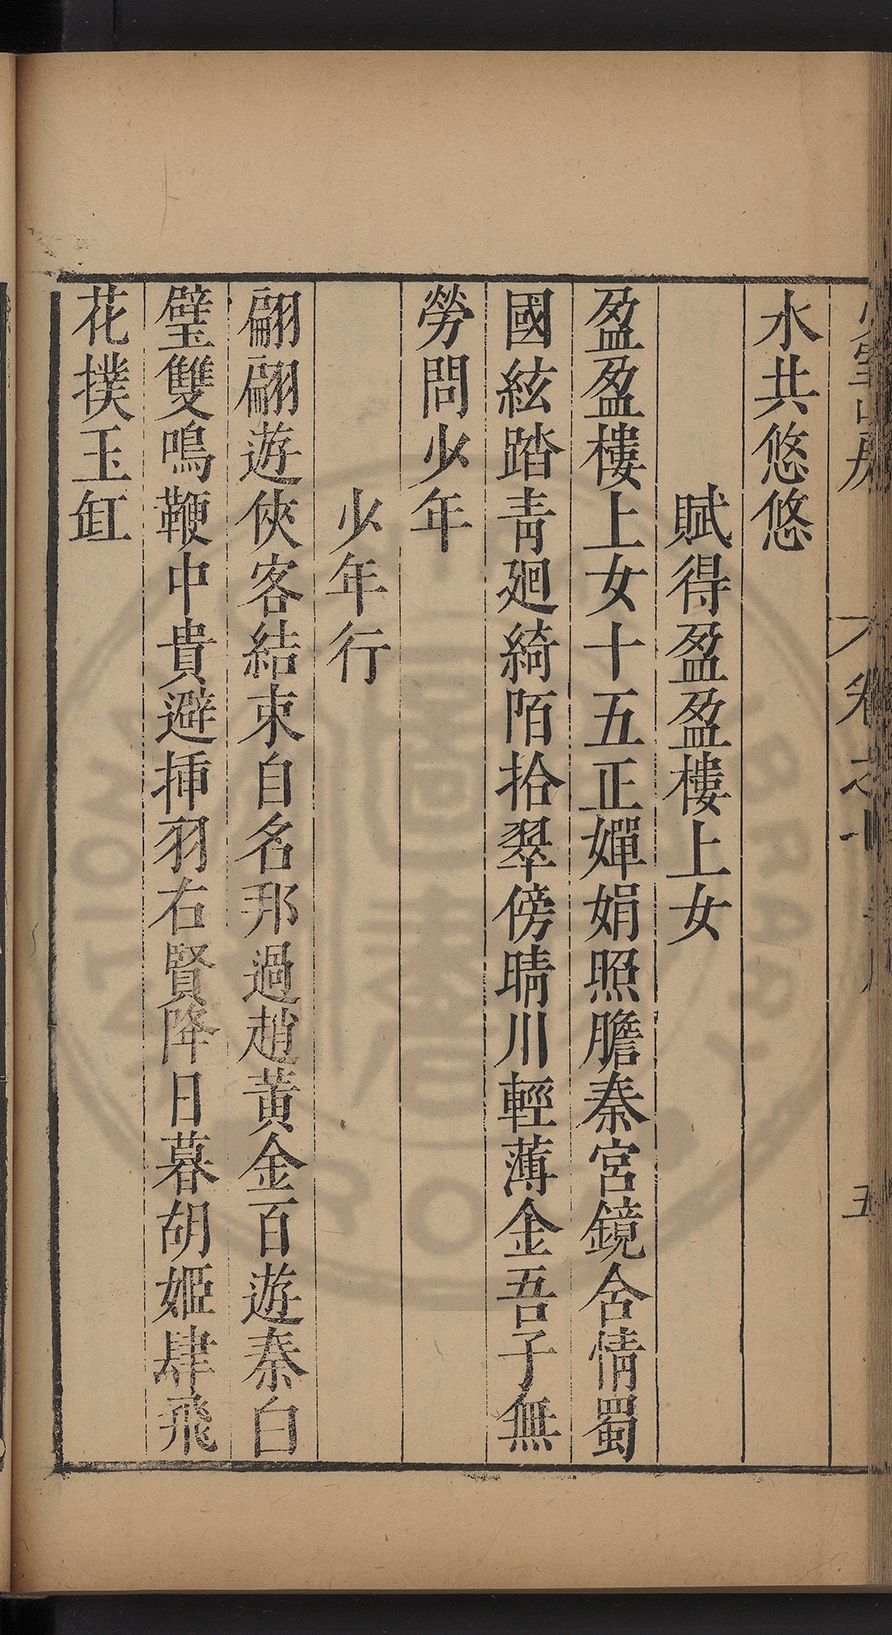 水共悠悠
賦得盈盈樓上女
盈盈樓上女十五正嬋娟照膽秦宮鏡含情蜀
國絃踏青廻綺陌拾翠傍晴川輕薄金吾子無
勞問少年
少年行
翩翩遊俠客結束自名邦過趙黃金百遊秦白
璧雙鳴鞭中貴避揷羽右賢降日暮胡姬肆飛
花撲玉缸